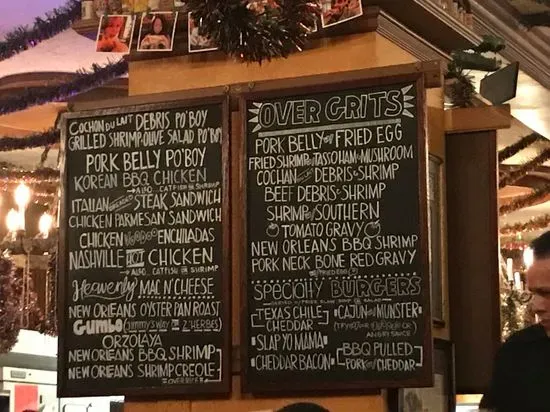 COCHON DU LAIT DEBRIS PO'BOY
GRILLED SHRIMP & OLIVE SALAD PO'BOY
PORK BELLY PO'BOY
KOREAN BBQ CHICKEN
ALSO CATFISH OR SHRIMP
ITALIAN STEAK SANDWICH
CHICKEN PARMESAN SANDWICH
CHICKEN VOODOO ENCHILADAS
NASHVILLE HOT CHICKEN
ALSO CATFISH OR SHRIMP
Heavenly MAC N' CHEESE
NEW ORLEANS OYSTER PAN ROAST
GUMBO (JIMMY'S WAY OR Z'HERBES)
ORZOLAYA
NEW ORLEANS BBQ SHRIMP
NEW ORLEANS SHRIMP CREOLE
OVER RICE
OVER GRITS
PORK BELLY w/ FRIED EGG
FRIED SHRIMP w/ TASSO HAM & MUSHROOM
COCHON DEBRIS & SHRIMP
BEEF DEBRIS & SHRIMP
SHRIMP w/ SOUTHERN
TOMATO GRAVY
NEW ORLEANS BBQ SHRIMP
PORK NECK BONE RED GRAVY
w/ FRIED EGG
SPECIALTY BURGERS
SERVED w/ FRIES, SLAW, SOUP OR SALAD
TEXAS CHILE
CHEDDAR
SLAP YO MAMA
CHEDDAR BACON
CAJUN MUNSTER
ANGRY SAUCE
BBQ PULLED
PORK w/ CHEDDAR